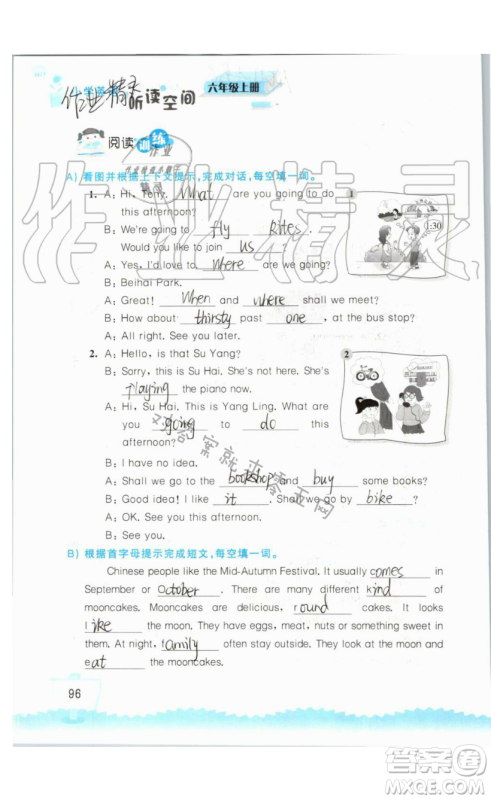 小学英语
听读空间
六年级上册
作业精灵
阅读训练
A) 看图并根据上下文提示,完成对话,每空填一词。
1. A: Hi, Tony. What are you going to do
this afternoon?
B: We're going to fly kites.
Would you like to join us?
A: Yes, I'd love to. Where are we going?
B: Beihai Park.
A: Great! When and where shall we meet?
B: How about thirsty past one, at the bus stop?
A: All right. See you later.
1
1:30
2. A: Hello, is that Su Yang?
B: Sorry, this is Su Hai. She's not here. She's
playing the piano now.
A: Hi, Su Hai. This is Yang Ling. What are
you going to do this
afternoon?
B: I have no idea.
A: Shall we go to the bookshop and buy some books?
B: Good idea! I like it. Shall we go by bike?
A: OK. See you this afternoon.
B: See you.
2
B) 根据首字母提示完成短文,每空填一词。
Chinese people like the Mid-Autumn Festival. It usually comes in
September or October. There are many different kind of
mooncakes. Mooncakes are delicious, round cakes. It looks
like the moon. They have eggs, meat, nuts or something sweet in
them. At night, family often stay outside. They look at the moon and
eat the mooncakes.
96
作业精灵
找答案就去零五网
答案圈
MXQE.COM